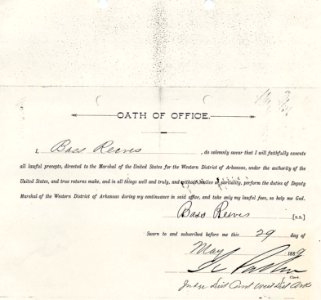 OATH OF OFFICE.
I, Bass Reeves, do solemnly swear that I will faithfully execute
all lawful precepts, directed to the Marshal of the United States for the Western District of Arkansas, under the authority of the
United States, and true returns make, and in all things well and truly, and without malice or partiality, perform the duties of Deputy
Marshal of the Western District of Arkansas during my continuance in said office, and take only my lawful fees, so help me God.
Bass Reeves [L.S.]
Sworn to and subscribed before me this 29 day of
May 188
Clerk.